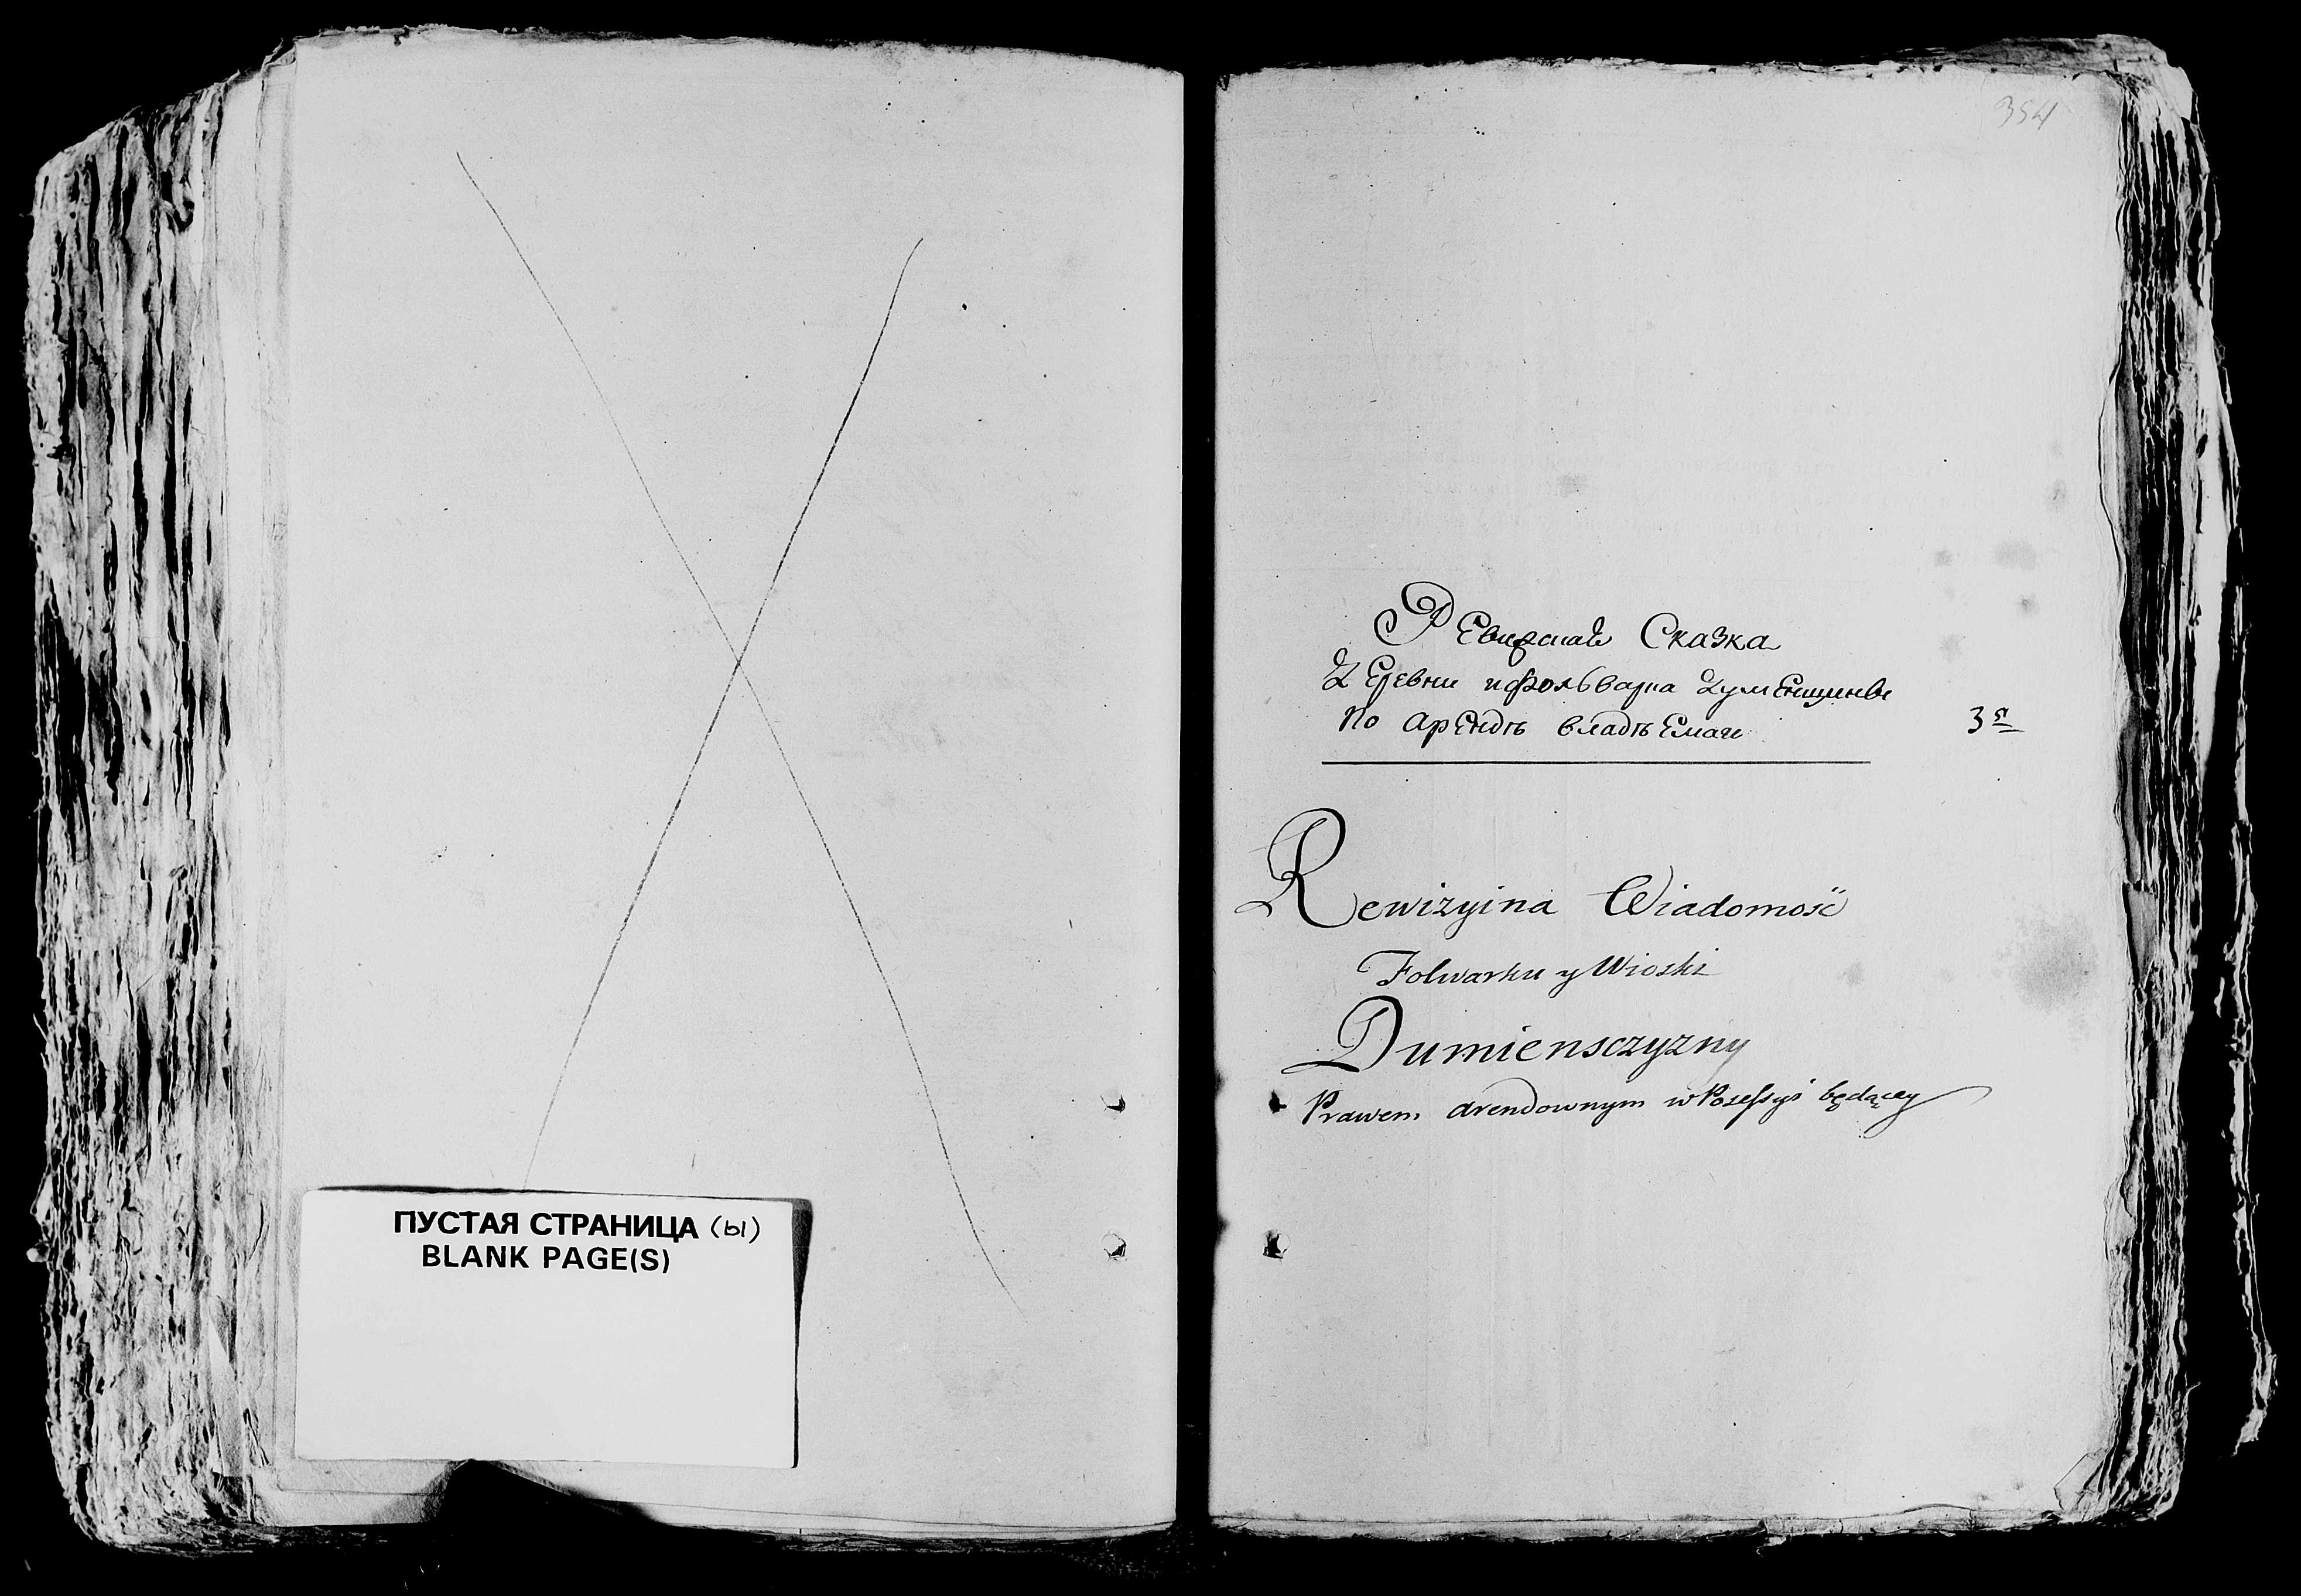 ПУСТАЯ СТРАНИЦА (ы)
BLANK PAGE(S)
354
Ревизская Сказка
Деревни и фольварка Думенщизны
по арендѣ владѣемаго
Rewizyina Wiadomość
Folwarku y Wioski
Dumiensczyzny
Prawem arendownym w Possessyi będącey